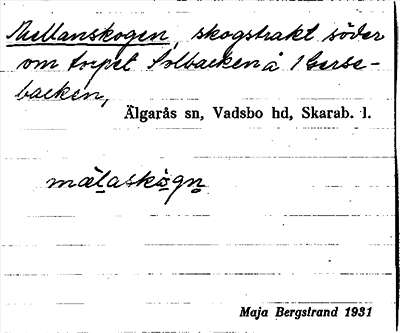 Mellanskogen, skogstrakt söder
om torpet Solbacken å
backen,
Älgarås sn, Vadsbo hd, Skarab. l.
mælaskògn̥
Maja Bergstrand 1931